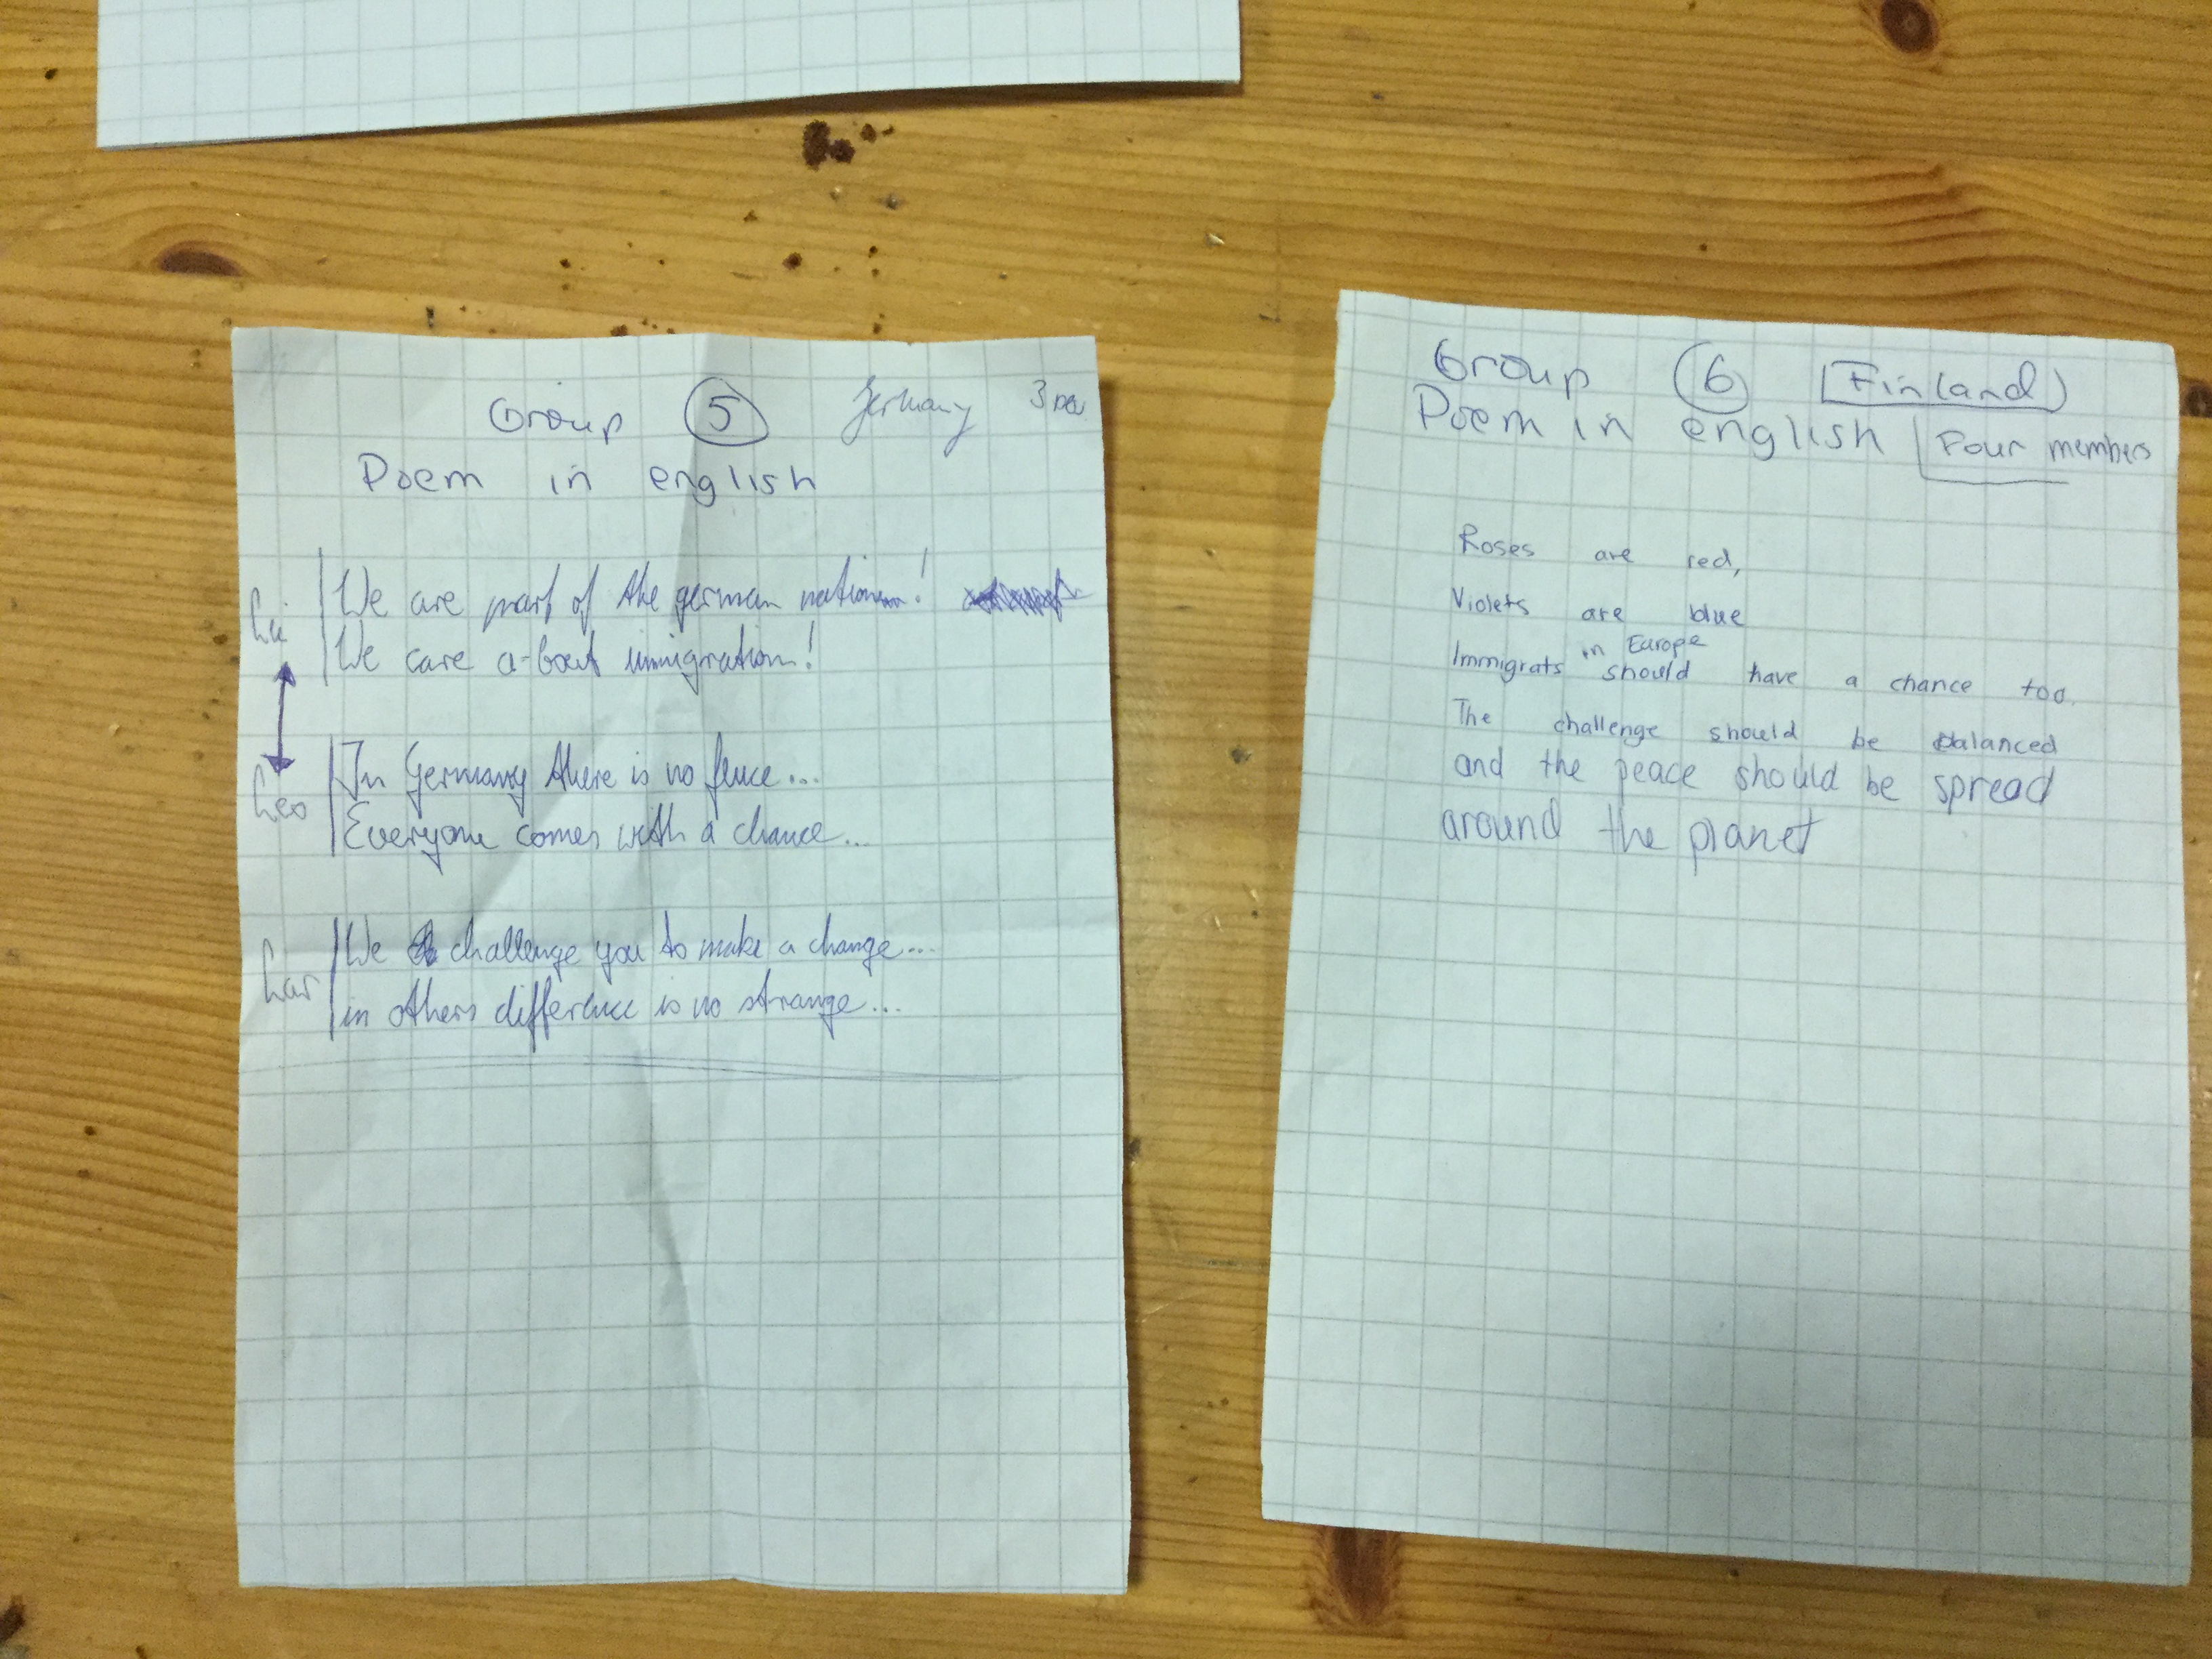 Group 5 Germany 3
Poem in english
We are part of the german nation!
We care a-bout immigration!
In Germany there is no fence...
Leo
Everyone comes with a chance...
We challenge you to make a change...
Lar
in others difference is no strange...
Group 6 Finland
Poem in english Four members
Roses are red,
Violets are blue
in Europe
Immigrats should have a chance too.
The challenge should be balanced
and the peace should be spread
around the planet